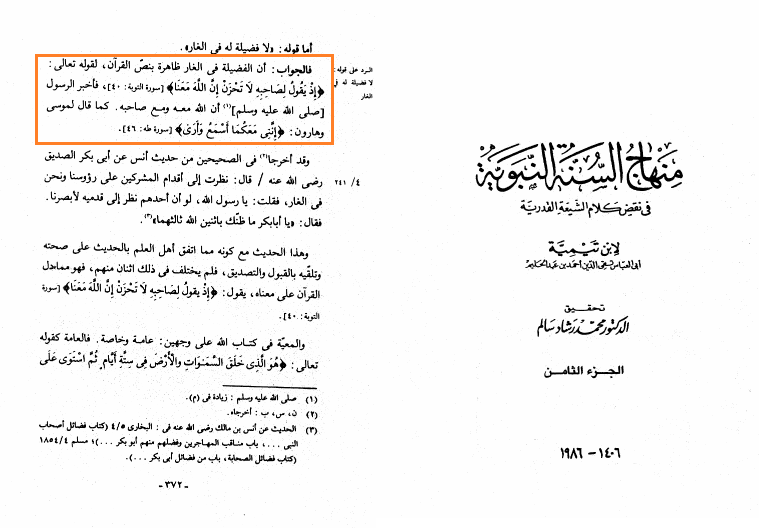 منهاج السنة النبوية
فى نقض كلام الشيعة القدرية
لابن تيمية
أبى العباس تقى الدين أحمد بن عبد الحليم
تحقيق
الدكتور محمد رشاد سالم
الجزء الثامن
١٤٠٦ – ١٩٨٦
أما قوله: «ولا فضيلة له فى الغار».
الرد على قوله:
لا فضيلة له فى
الغار
فالجواب: أن الفضيلة فى الغار ظاهرة بنصّ القرآن، لقوله تعالى:
﴿إِذْ يَقُولُ لِصَاحِبِهِ لَا تَحْزَنْ إِنَّ اللَّهَ مَعَنَا﴾ [سورة التوبة: ٤٠]، فأخبر الرسول
[صلى الله عليه وسلم](١) أن الله معه ومع صاحبه. كما قال لموسى
وهارون: ﴿إِنَّنِى مَعَكُمَا أَسْمَعُ وَأَرَى﴾ [سورة طه: ٤٦].
وقد أخرجا(٢) فى الصحيحين من حديث أنس عن أبى بكر الصديق
٤/ ٢٤١
رضى الله عنه / قال: نظرت إلى أقدام المشركين على رؤوسنا ونحن
فى الغار، فقلت: يا رسول الله، لو أن أحدهم نظر إلى قدميه لأبصرنا.
فقال: «يا أبابكر ما ظنّك باثنين الله ثالثهما»(٣).
وهذا الحديث مع كونه مما اتفق أهل العلم بالحديث على صحته
وتلقّيه بالقبول والتصديق، فلم يختلف فى ذلك اثنان منهم، فهو ممادل
القرآن على معناه، يقول: ﴿إِذْ يَقُولُ لِصَاحِبِهِ لَا تَحْزَنْ إِنَّ اللَّهَ مَعَنَا﴾ [سورة
التوبة: ٤٠].
والمعيّة فى كتاب الله على وجهين: عامة وخاصة. فالعامة كقوله
تعالى: ﴿هُوَ الَّذِى خَلَقَ السَّمَٰوَاتِ وَالْأَرْضَ فِى سِتَّةِ أَيَّامٍ ثُمَّ اسْتَوَى عَلَى
(١) صلى الله عليه وسلم: زيادة فى (م).
(٢) ن، س، ب: أخرجاه.
(٣) الحديث عن أنس بن مالك رضى الله عنه فى: البخارى ٤/٥ (كتاب فضائل أصحاب
النبى ...، باب مناقب المهاجرين وفضلهم منهم أبو بكر ...)؛ مسلم ١٨٥٤/٤
(كتاب فضائل الصحابة، باب من فضائل أبى بكر ...).
– ٣٧٢ –